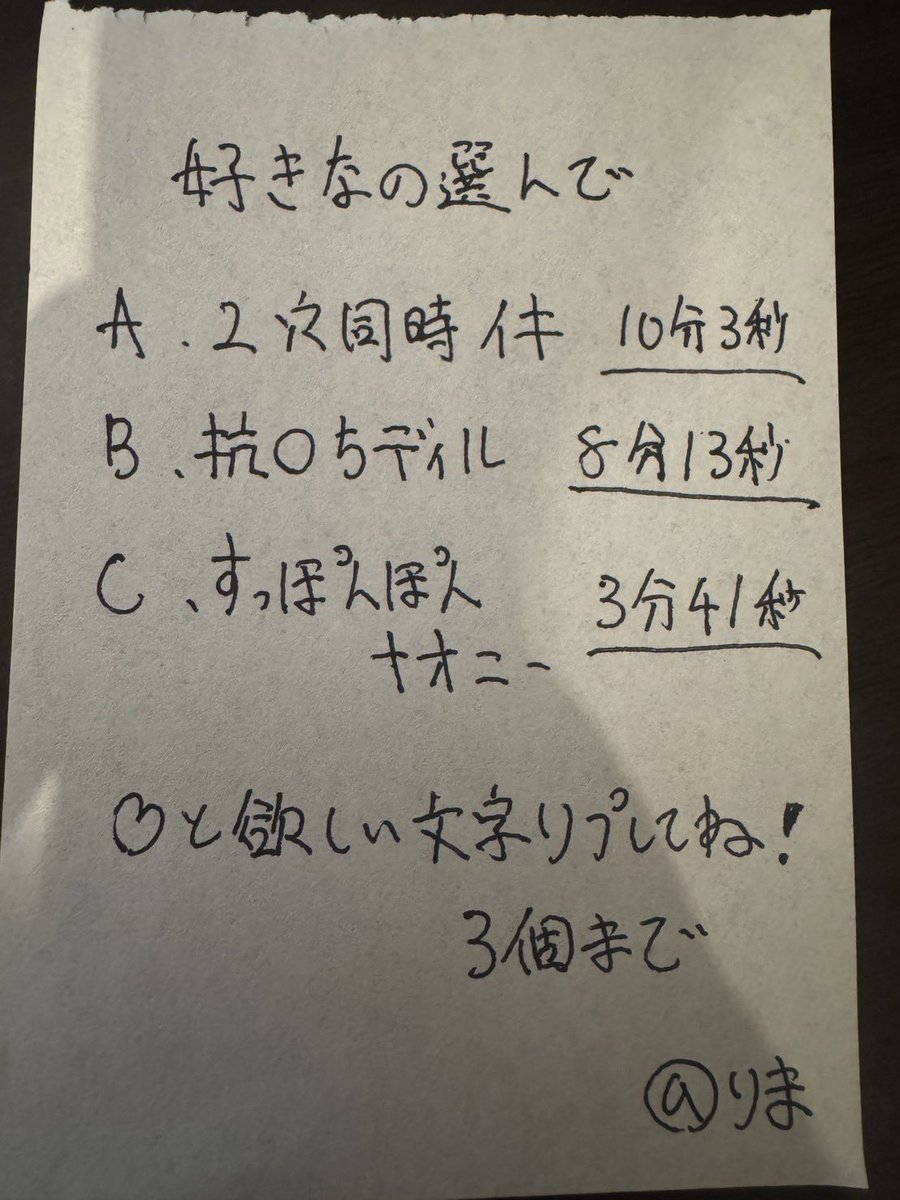 好きなの選んで
A、2穴同時イキ 10分3秒
B、抗〇ちディル 8分13秒
C、すっぽんぽん 3分41秒
ナオニー
♡と欲しい文字リプしてね!
3個まで
@りま